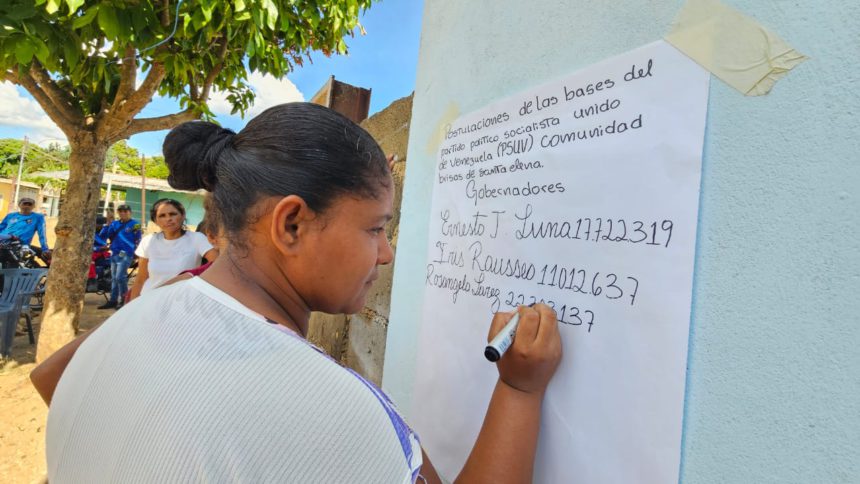 Postulaciones de las bases del
partido politico socialista unido
de Venezuela (PSUV) comunidad
brisas de santa elena.
Gobernadores
Ernesto J. Luna 17.722.319
Iris Rausseo 11012.637
Rosangela 137